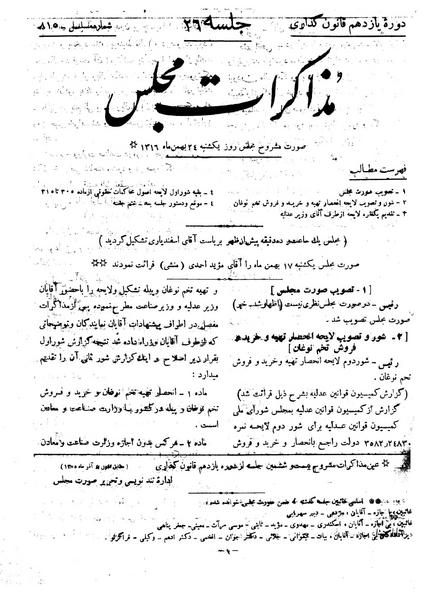 دورهٔ یازدهم قانون گذاری
جلسه ۲۶
شماره مسلسل ۸۱۵
مذاکرات مجلس
صورت مشروح مجلس روز یکشنبه ۲۴ بهمن ماه ۱۳۱۶
فهرست مطالب
۱ - تصویب صورت مجلس
۲ - شور و تصویب لایحه انحصار تهیه و خرید و فروش تخم نوغان
۳ - تقدیم یکفقره لایحه ازطرف آقای وزیر عدلیه
۴ - بقیه شور اول لایحه اصول محاکمات حقوقی ازماده ۳۰۵ تا ۳۱۵
۵ - موقع و دستور جلسه بعد - ختم جلسه
( مجلس یك ساعت و ده دقیقه پیش از ظهر بریاست آقای اسفندیاری تشکیل گردید )
صورت مجلس یکشنبه ۱۷ بهمن ماه را آقای مؤید احدی (منشی) قرائت نمودند
[ ۱ - تصویب صورت مجلس ]
رئیس - در صورت مجلس نظری نیست (اظهار شد - خیر)
صورت مجلس تصویب شد .
[ ۲ - شور و تصویب لایحه انحصار تهیه و خرید و
فروش تخم نوغان ]
رئیس - شور دوم لایحه انحصار تهیه و خرید و فروش
تخم نوغان .
(گزارش کمیسیون قوانین عدلیه بشرح ذیل قرائت شد)
گزارش از کمیسیون قوانین عدلیه بمجلس شورای ملی
کمیسیون قوانین عدلیه برای شور دوم لایحه نمره
۳۵۸۲،۲۴۸۳۰ دولت راجع بانحصار و خرید و فروش
و تهیه تخم نوغان و پیله تشکیل و لایحه را با حضور آقایان
وزیر عدلیه و وزیر صناعت مطرح نموده پس از مذاکرات
مفصلی در اطراف پیشنهادات آقایان نمایندگان و توضیحاتی
که ازطرف آقایان وزراء داده شد نتیجتاً گزارش شور اول
بقرار زیر اصلاح و اینك گزارش شور ثانی آن را تقدیم
میدارد :
ماده ۱ - انحصار تهیه تخم نوغان و خرید و فروش
تخم نوغان و پیله در کشور با وزارت صناعت و معادن
است .
ماده ۲ - هر کس بدون اجازه وزارت صناعت و معادن
عین مذاکرات مشروح بیست و ششمین جلسه از دوره یازدهم قانون گذاری
اداره تند نویسی و تحریر صورت مجلس
اسامی غائبین جلسه گذشته که ضمن صورت مجلس خوانده شده :
غائبین با اجازه - آقایان : - دبیر سهرابی
غائبین بی اجازه - آقایان : اسکندری - بهبودی - مؤید ثابتی - موسی مرآت - معینی - جعفر پناهی